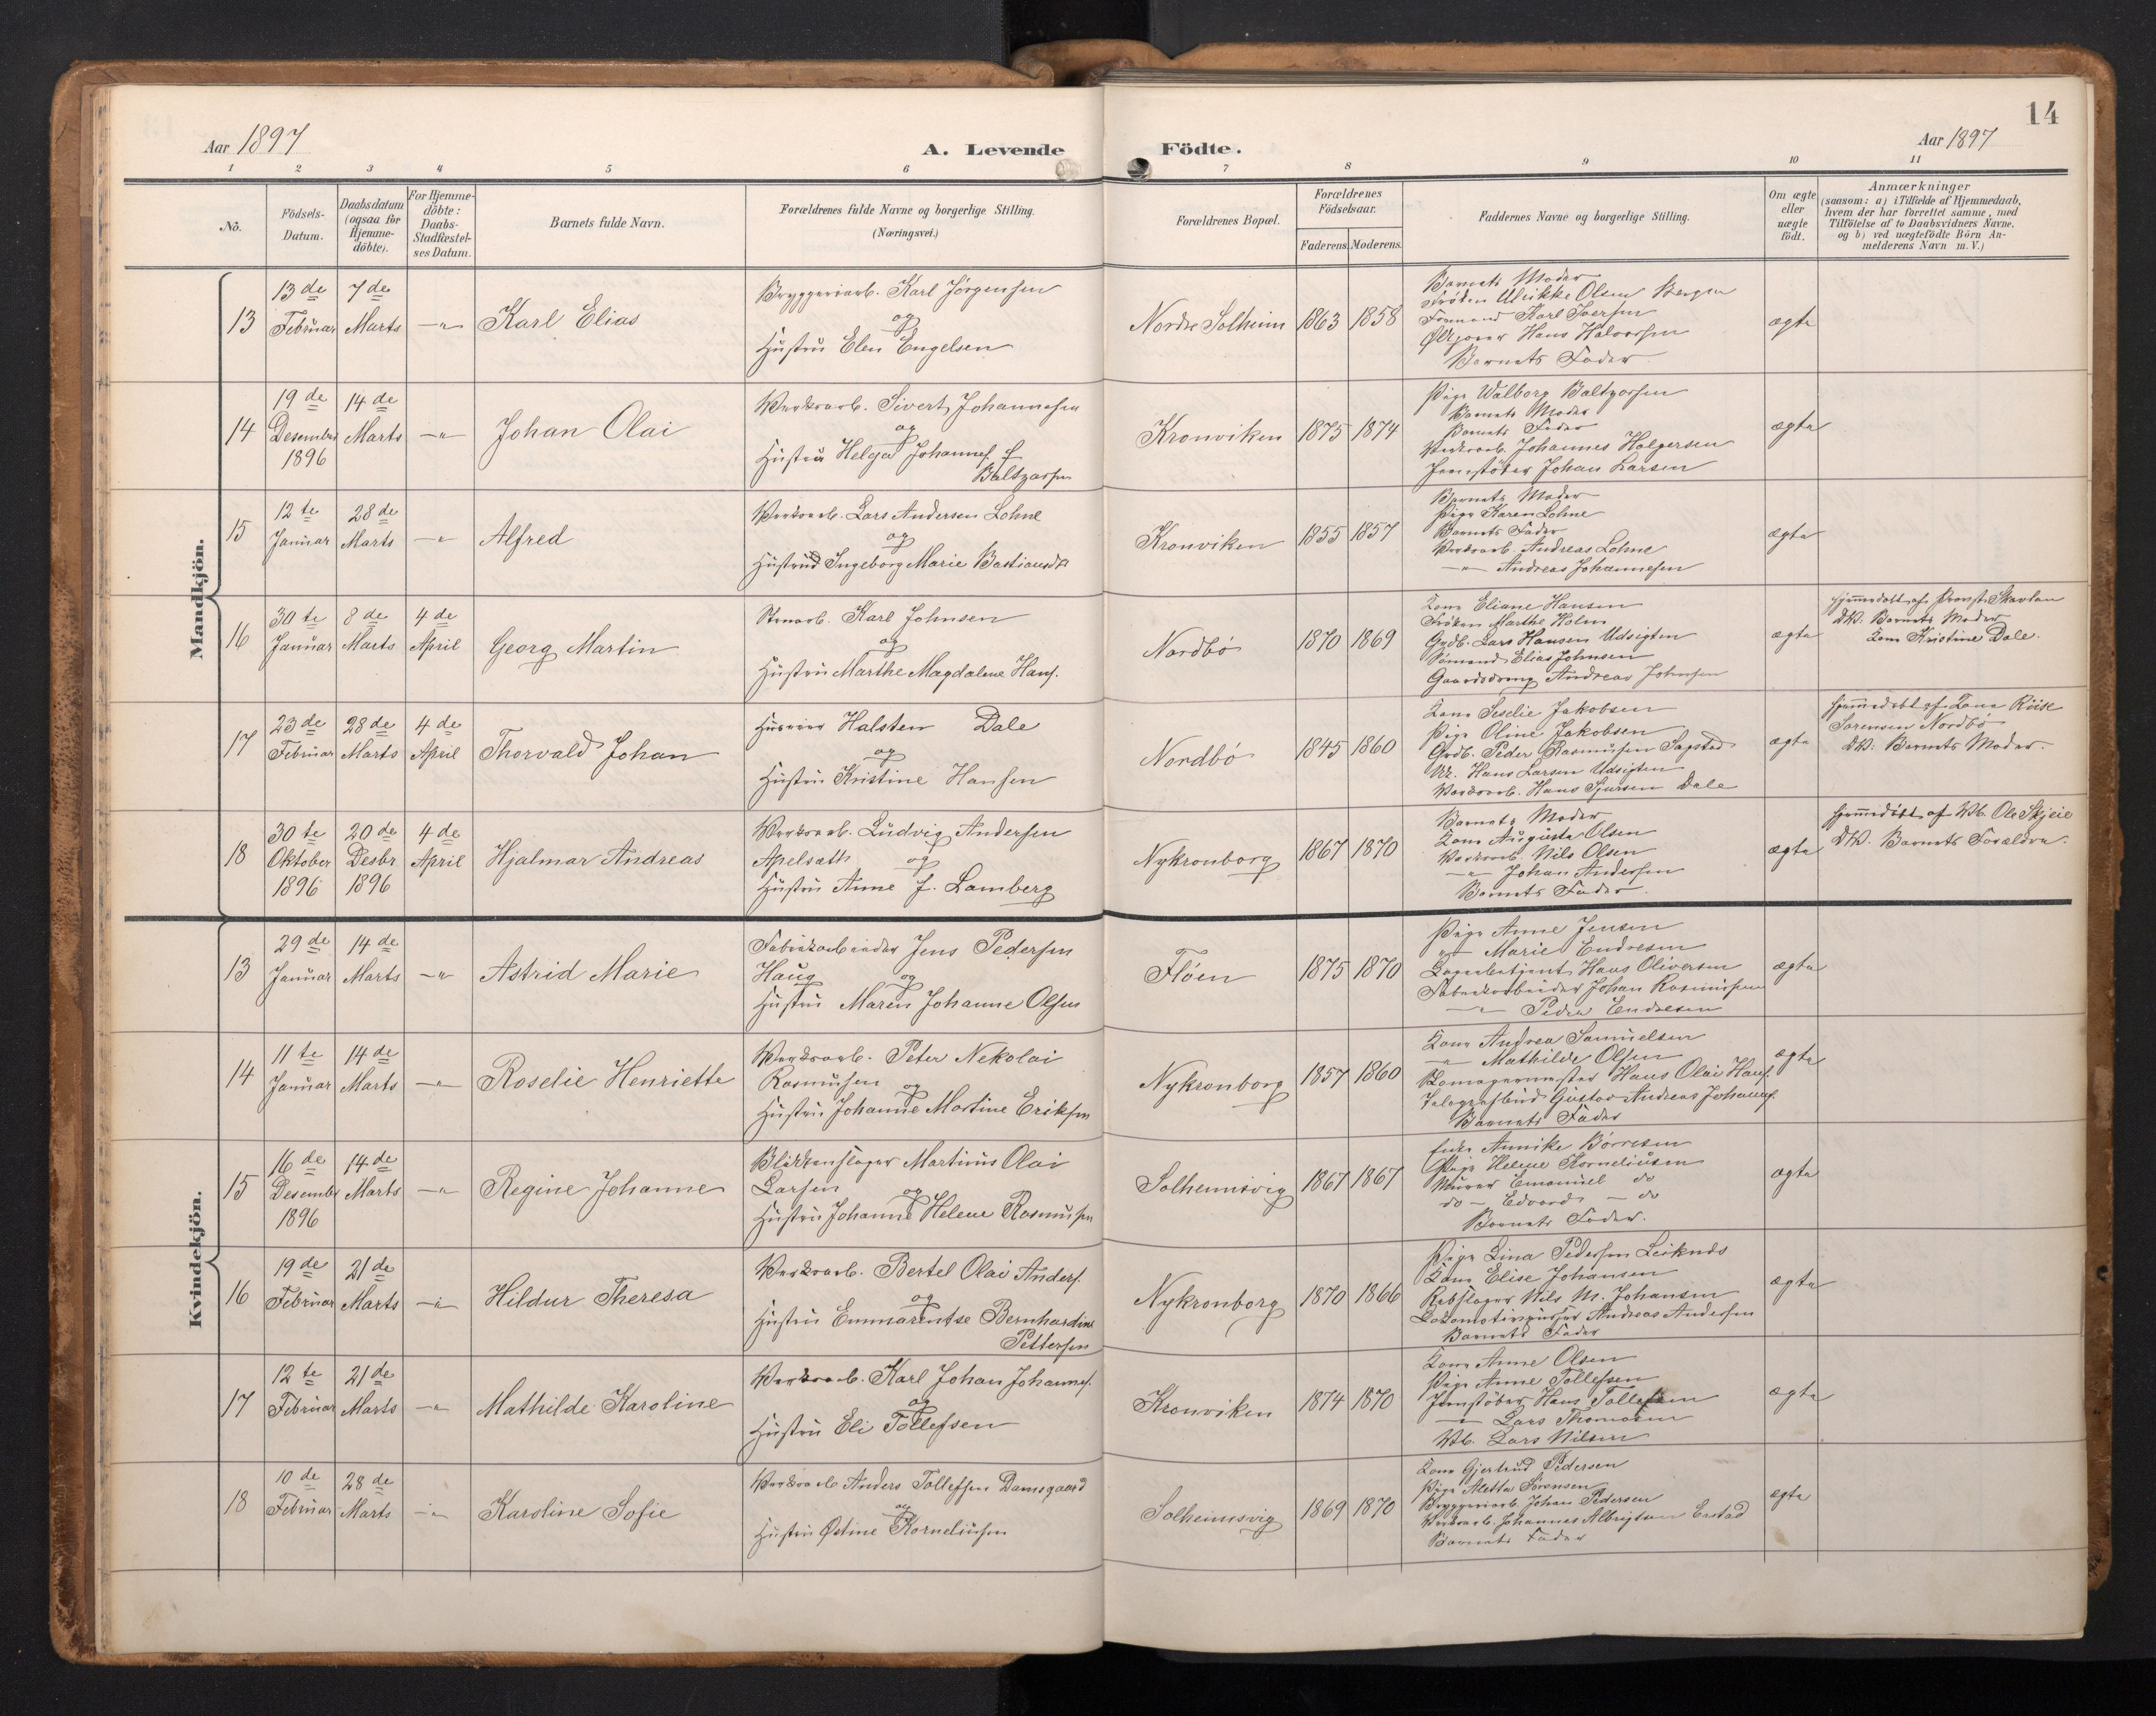 14
Aar 1897
A. Levende Födte.
Aar 1897
1 2 3 4 5 6 7 8 9 10 11
No.
Födsels-Datum.
Daabsdatum (ogsaa for Hjemme-döbte).
For Hjemme-döbte: Daabs-Stadfæstel-ses Datum.
Barnets fulde Navn.
Forældrenes fulde Navne og borgerlige Stilling. (Næringsvei.)
Forældrenes Bopæl.
Forældrenes Födselsaar.
Faderens. Moderens.
Faddernes Navne og borgerlige Stilling.
Om ægte eller uægte födt.
Anmærkninger
(saasom: a) i Tilfælde af Hjemmedaab,
hvem der har forrettet samme, med
Tilföielse af to Daabsvidners Navne.
og b) ved uægtefödte Börn An-
melderens Navn m. V.)
Mandkjön.
13
13de Februar
7de Marts
-"-
Karl Elias
Bryggeriarb. Karl Jörgensen
og
Hustru Elen Engelsen
Nordre Solheim
1863 1858
Barnets Moder
Fröken Ulrikke Olsen Bergen
Formand Karl Iversen
Hans Halvorsen
Barnets Fader
ægte
14
19de Desember 1896
14de Marts
-"-
Johan Olai
Verksarb. Sivert Johannesen
og
Hustru Helga Johannes. f.
Baltzersen
Kronviken
1875 1874
Pige Walborg Baltzersen
Barnets Moder
Barnets Fader
Verksarb. Johannes Holgersen
Jernstöber Johan Larsen
ægte
15
12te Januar
28de Marts
-"-
Alfred
Verksarb. Lars Andersen Lohne
og
Hustru Ingeborg Marie Bastiansdt
Kronviken
1855 1857
Barnets Moder
Pige Karen Lohne
Barnets Fader
Verksarb. Andreas Lohne
-"- Andreas Johannesen
ægte
16
30te Januar
8de Marts
4de April
Georg Martin
Stenarb. Karl Johnsen
og
Hustru Marthe Magdalene Hans.
Nordbö
1870 1869
Kone Eliane Hansen
Fröken Marthe Holm
Grdb. Lars Hansen Udsigten
Sömand Elias Johnsen
Gaardsdreng Andreas Johnsen
ægte
Hjemmedöbt af Provst Skavlan
DV. Barnets Moder
Kone Kristine Dale.
17
23de Februar
28de Marts
4de April
Thorvald Johan
Huseier Halsten Dale
og
Hustru Kristine Hansen
Nordbö
1845 1860
Kone Seselie Jakobsen
Pige Oline Jakobsen
Grdb. Peder Rasmusen Sagstad
Hans Larsen Udsigten
Verksarb. Hans Sjursen Dale
ægte
Hjemmedöbt af Kone Röise
Sörensen Nordbö
DV: Barnets Moder.
18
30te Oktober 1896
20de Desbr 1896
4de April
Hjalmar Andreas
Verksarb. Ludvig Andersen
Apelsæth og
Hustru Anne f. Lamberg
Nykronborg
1867 1870
Barnets Moder
Kone Augusta Olsen
Verksarb. Nils Olsen
-"- Johan Andersen
Barnets Fader
ægte
Hjemmedöbt af Vb. Ole Skjeie
DV. Barnets Forældre.
Kvindekjön.
13
29de Januar
14de Marts
-"-
Astrid Marie
Fabrikarbeider Jens Pedersen
Haug og
Hustru Maren Johanne Olsen
Flöen
1875 1870
Pige Anne Jensen
-"- Marie Endresen
Lagerbetjent Hans Oliversen
Fabrikarbeider Johan Rasmusen
-"- Peder Endresen
ægte
14
11te Januar
14de Marts
-"-
Roselie Henriette
Verksarb. Peter Nekolai
Rasmusen og
Hustru Johanne Martine Eriksen
Nykronborg
1857 1860
Kone Andrea Samuelsen
-"- Mathilde Olsen
Hans Olai Hans.
Telegrafbud Gustav Andreas Johannes.
Barnets Fader
ægte
15
16de Desembr 1896
14de Marts
-"-
Regine Johanne
Blikkenslager Martinus Olai
Larsen og
Hustru Johanne Helene Rasmusen
Solheimsvig
1867 1867
Enke Annike Börresen
Pige Helene Korneliusen
Murer Emanuel do
do - Edvard - do
Barnets Fader.
ægte
16
19de Februar
21de Marts
-"-
Hildur Theresa
Verksarb. Bertel Olai Anders.
og
Hustru Emmarentse Bernhardine
Pettersen
Nykronborg
1870 1866
Pige Lina Pedersen Leiknes
Kone Elise Johansen
Rebslager Nils M. Johansen
Lokomotivpudser Andreas Andersen
Barnets Fader
ægte
17
12te Februar
21de Marts
-"-
Mathilde Karoline
Verksarb. Karl Johan Johannes.
og
Hustru Eli Tollefsen
Kronviken
1874 1870
Kone Anne Olsen
Pige Anne Tollefsen
Jernstöber Hans Tollefsen
-"- Lars Thomasen
Vb. Lars Nilsen
ægte
18
10de Februar
28de Marts
-"-
Karoline Sofie
Verksarb Anders Tollefsen Damsgaard
og
Hustru Östine Korneliusen
Solheimsvig
1869 1870
Kone Gjertrud Pedersen
Pige Aletta Sörensen
Bryggeriarb. Johan Pedersen
Verksarb. Johannes Albrigtsen Erstad
Barnets Fader
ægte